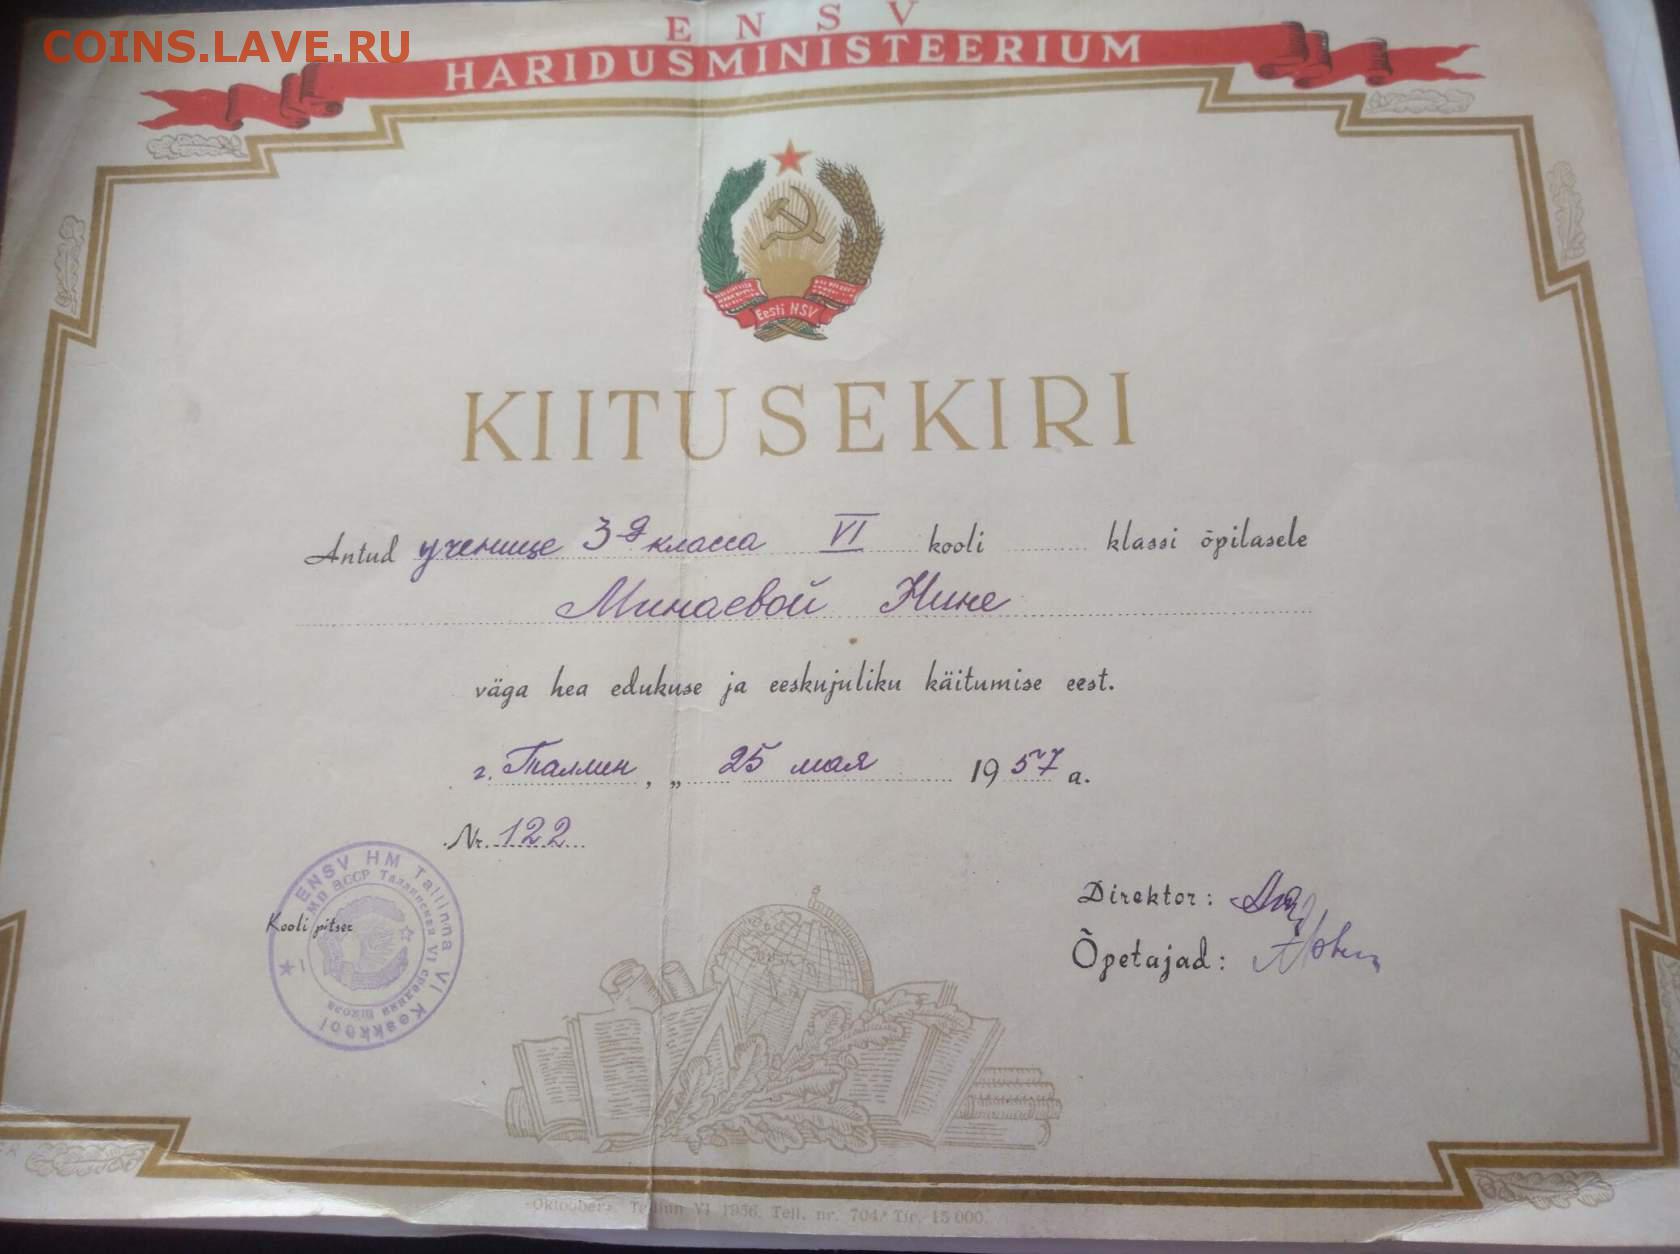 COINS.LAVE.RU
E N S V
HARIDUSMINISTEERIUM
Eesti NSV
KIITUSEKIRI
Antud ученице 3-д класса VI kooli klassi õpilasele
Минаевой Нине
väga hea edukuse ja eeskujuliku käitumise eest.
г. Таллин, „ 25 мая 1957 a.
Nr. 122
ENSV HM Tallinna VI Keskkool
МП ЭССР Таллинская VI средняя школа
Kooli pitser
Direktor:
Õpetajad:
«Oktoober», Tallinn VI 1956. Tell. nr. 704. Tir. 15 000.